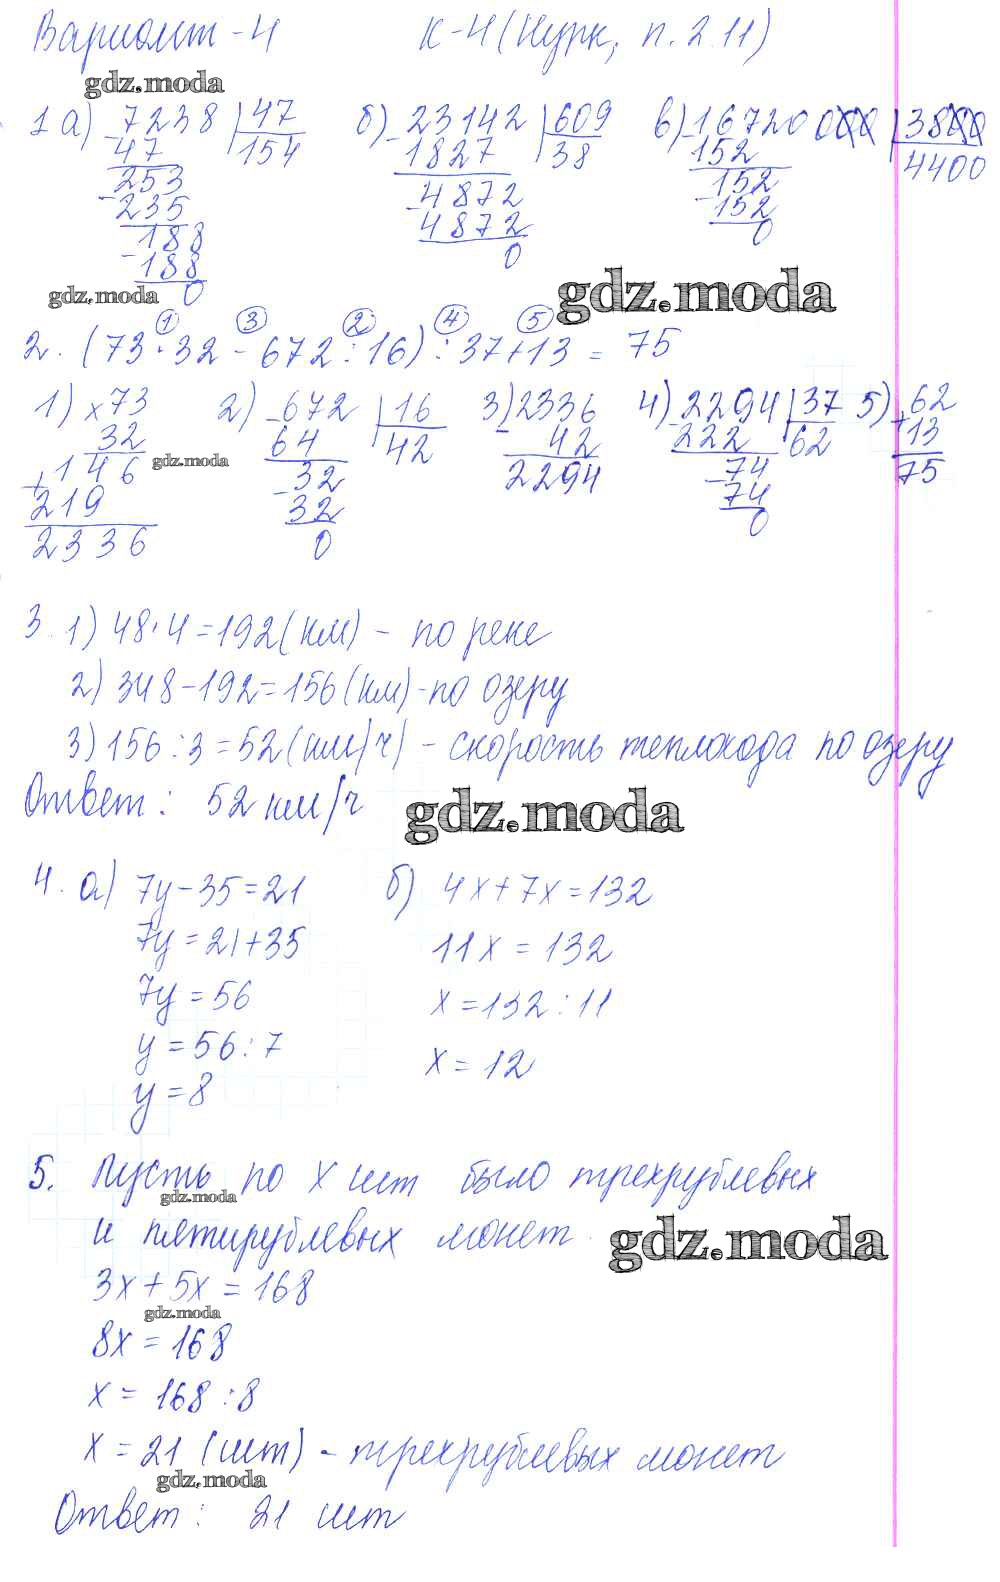 Вариант - 4 К-4 (Нурк, п. 2.11)
gdz.moda
1 а) 7238 | 47 б) 23142 | 609 в) 16720000 | 3800
- 47 154 - 1827 38 - 152 4400
253 4872 152
- 235 - 4872 - 152
188 0 0
- 188
0
gdz.moda gdz.moda
① ③ ② ④ ⑤
2. (73·32 - 672 : 16) : 37 + 13 = 75
1) × 73 2) 672 | 16 3) 2336 4) 2294 | 37 5) 62
32 - 64 42 - 42 - 222 62 + 13
+ 146 32 2294 74 75
219 - 32 - 74
2336 0 0
gdz.moda
3. 1) 48·4 = 192 (км) - по реке
2) 348 - 192 = 156 (км) - по озеру
3) 156 : 3 = 52 (км/ч) - скорость теплохода по озеру
Ответ: 52 км/ч
gdz.moda
4. а) 7y - 35 = 21 б) 4x + 7x = 132
7y = 21 + 35 11x = 132
7y = 56 x = 132 : 11
y = 56 : 7 x = 12
y = 8
5. Пусть по x шт было трехрублевых
gdz.moda
и пятирублевых монет.
gdz.moda
3x + 5x = 168
gdz.moda
8x = 168
x = 168 : 8
x = 21 (шт) - трехрублевых монет
gdz.moda
Ответ: 21 шт